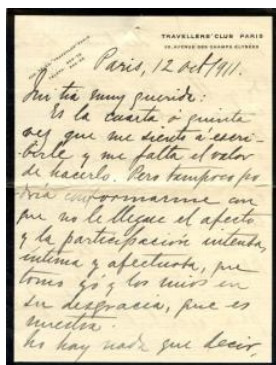 TRAVELLERS' CLUB PARIS
25, AVENUE DES CHAMPS ELYSÉES
Paris, 12 oct/1911.
Mi tía muy querida:
Es la cuarta ó quinta
vez que me siento á escri-
birle y me falta el valor
de hacerlo. Pero tampoco po
dría conformarme con
que no le llegue el afecto
y la participación intensa,
íntima y afectuosa, que
tomo yó y los mios en
su desgracia, que es
nuestra.
No hay nada que decir,